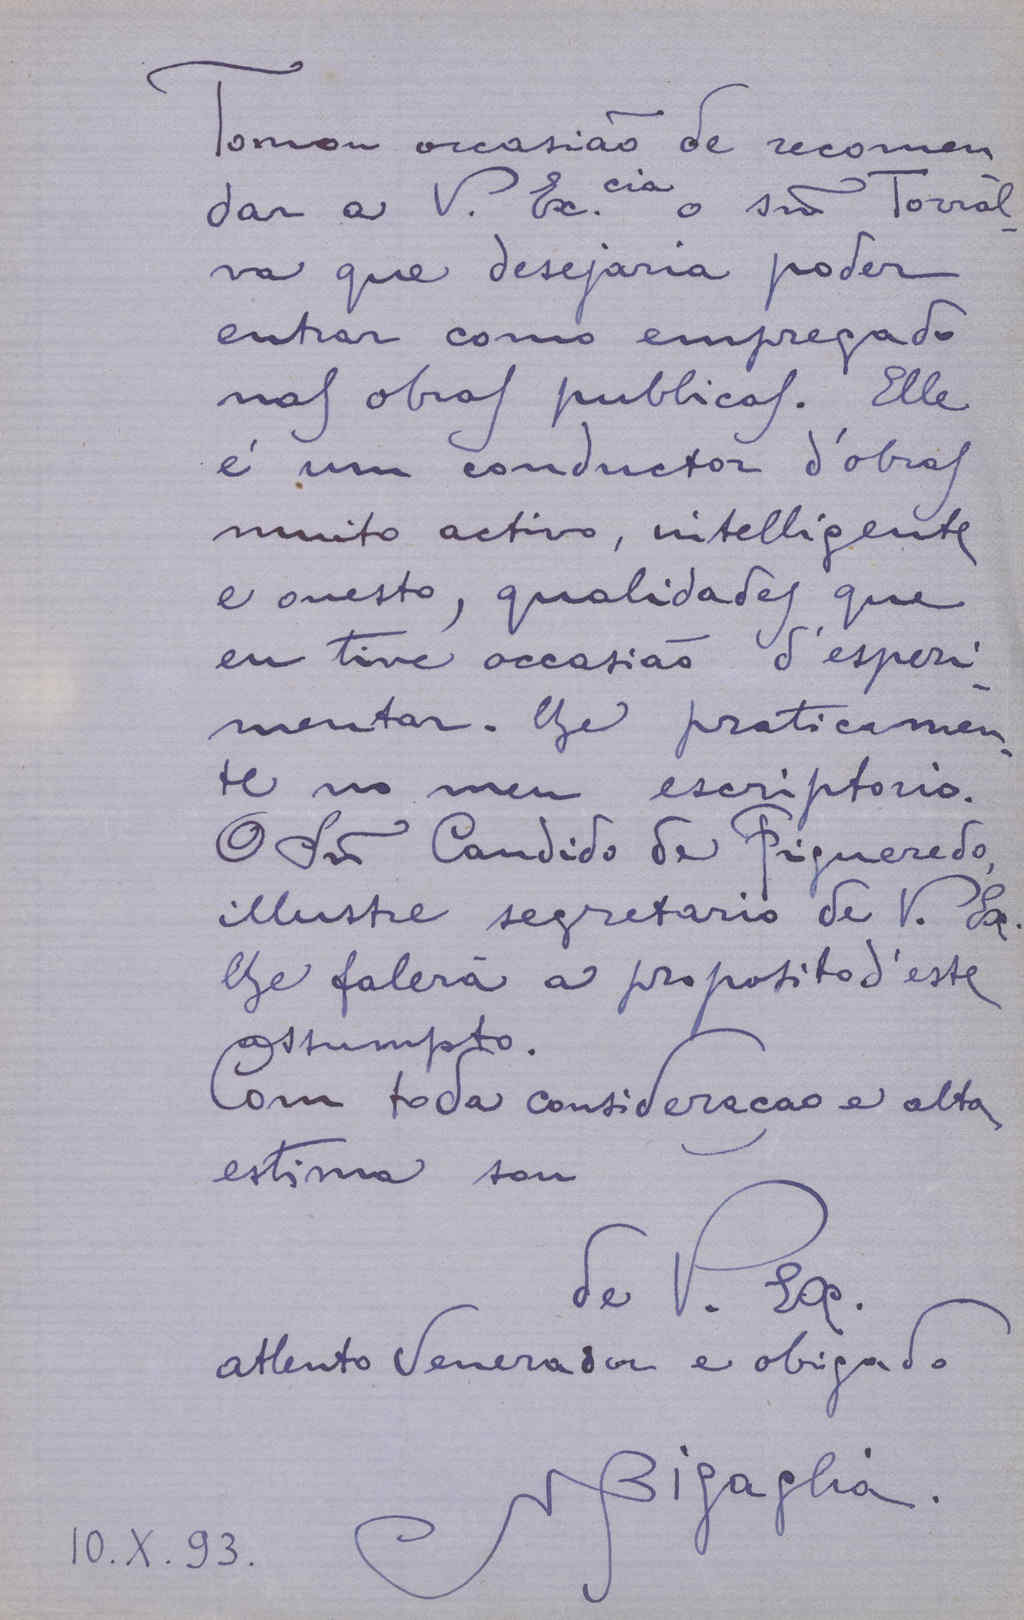 Tomou occasião de recomen
dar a V. Ex.cia o snr Torrál-
va que desejaria poder
entrar como empregado
nas obras publicas. Elle
é um conductor d'obras
muito activo, intelligente
e onesto, qualidades que
eu tive occasião d'esperi-
mentar. lhe praticamen-
te no meu escriptorio.
O Snr Candido de Figueredo,
illustre segretario de V. Ex.
lhe falerà a proposito d'este
assumpto.
Com toda consideracao e alta
estima sou
de V. Ex.
attento venerador e obigado
N Bigaglia.
10.X.93.